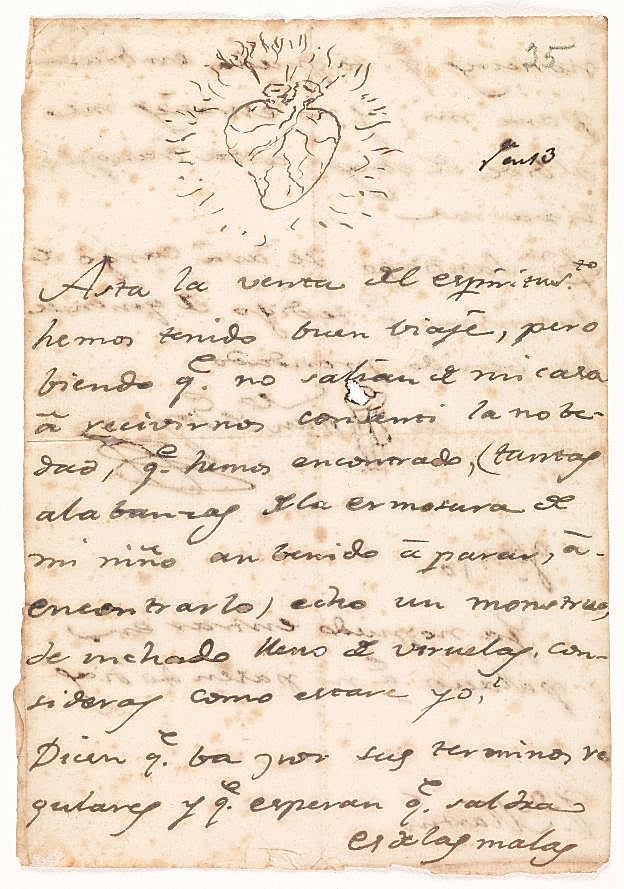 35
Asta la venta del espiritus.to
hemos tenido buen biaje, pero
biendo q.e no salian de mi casa
â recivirnos consenti la nobe-
dad, q.e hemos encontrado, (tantas
alabanzas de la ermosura de
mi niño an benido â parar, â
encontrarlo) echo un monstruo,
de inchado lleno de viruelas. con-
sideras como estare yo,
Dicen q.e ba por sus terminos re
gulares y q.e esperan q.e saldra
es de las malas